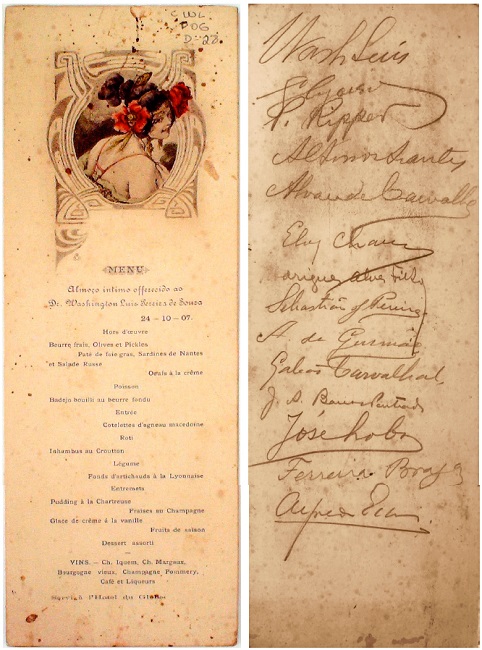 CWL
POG
D-22
MENU
Almoço intimo offerecido ao
Dr. Washington Luis Pereira de Souza
24 - 10 - 07.
Hors d'œuvre
Beurre frais, Olives et Pickles
Paté de foie gras, Sardines de Nantes
et Salade Russe
Oeufs à la crème
Poisson
Badejo bouilli au beurre fondu
Entrée
Cotelettes d'agneau macedoine
Roti
Inhambus au Croutton
Légume
Fonds d'artichauds à la Lyonnaise
Entremets
Pudding à la Chartreuse
Fraises au Champagne
Glace de crème à la vanille
Fruits de saison
Dessert assorti
VINS. — Ch. Iquem, Ch. Margaux,
Bourgogne vieux, Champagne Pommery,
Café et Liqueurs
Wash Luis
Ripper
Altino Arantes
Alvaro de Carvalho
Eloy Chaves
Sebastião Pereira
A. de Gusmão
Galeão Carvalhal
José Lobo
Ferreira Braga
Alfredo